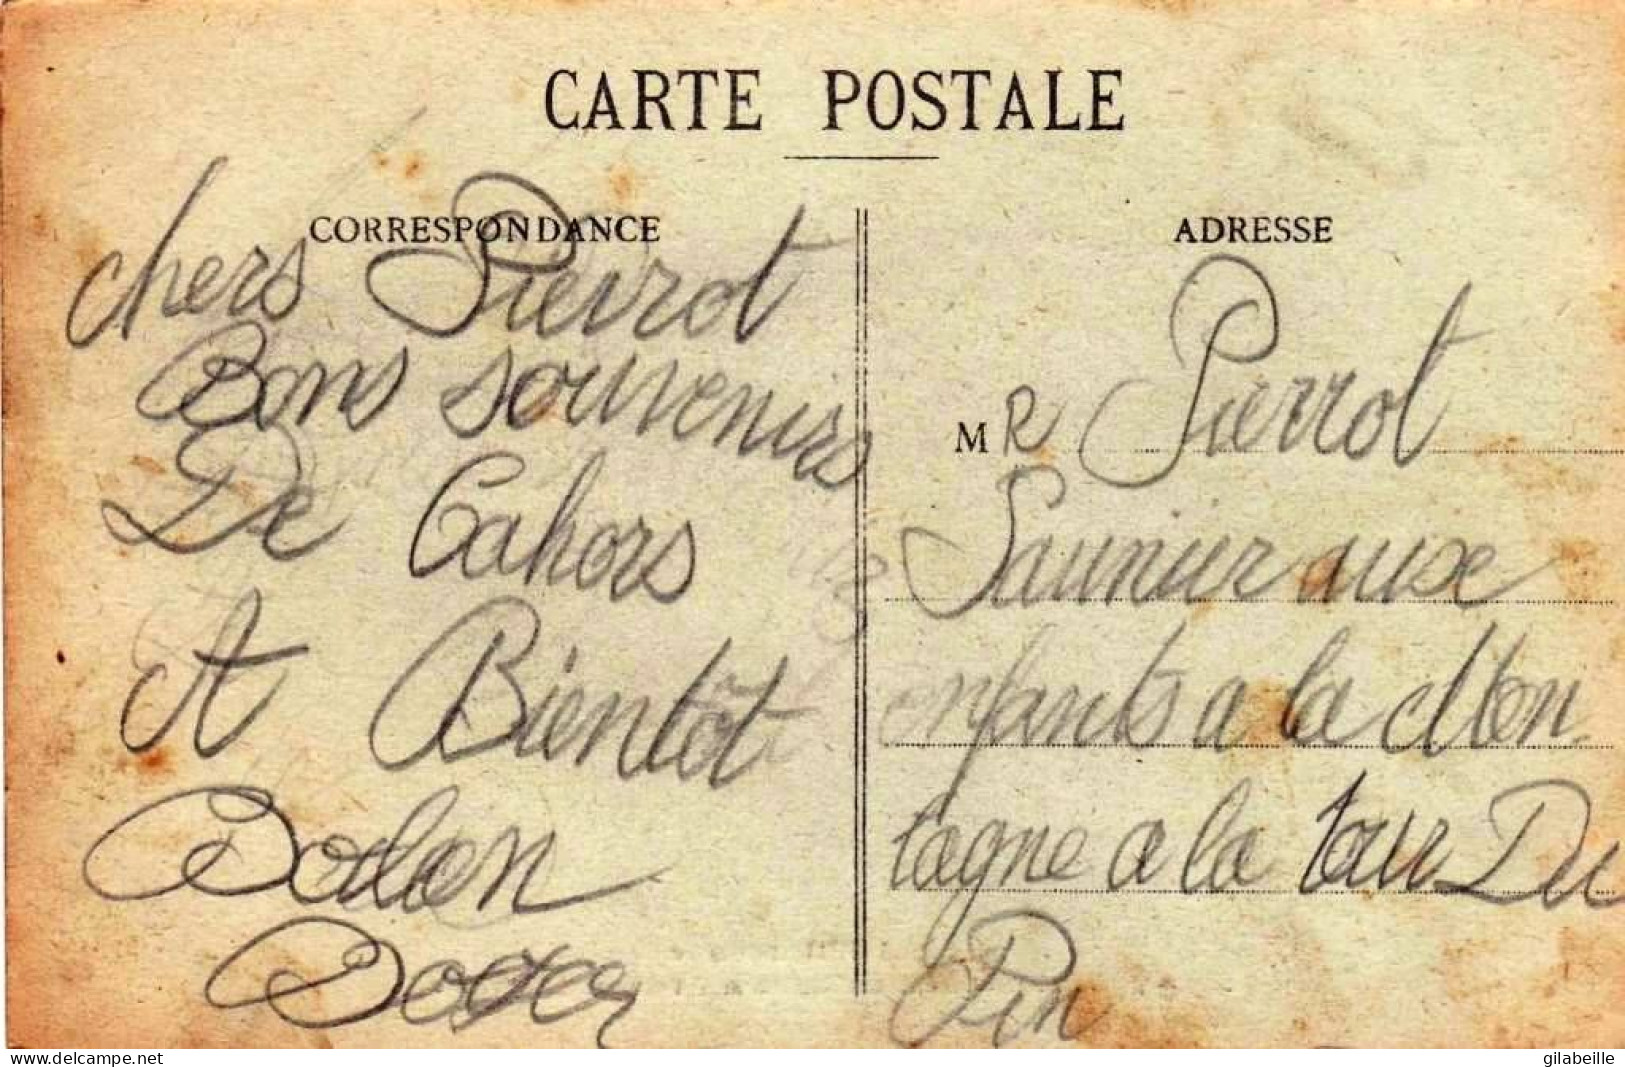 CARTE POSTALE
CORRESPONDANCE
chers Pierrot
Bons souvenirs
De Cahors
A Bientôt
ADRESSE
MR Pierrot
Saunier aux
enfants a la Mon
tagne a la tour Du
Pin
www.delcampe.net
gilabeille